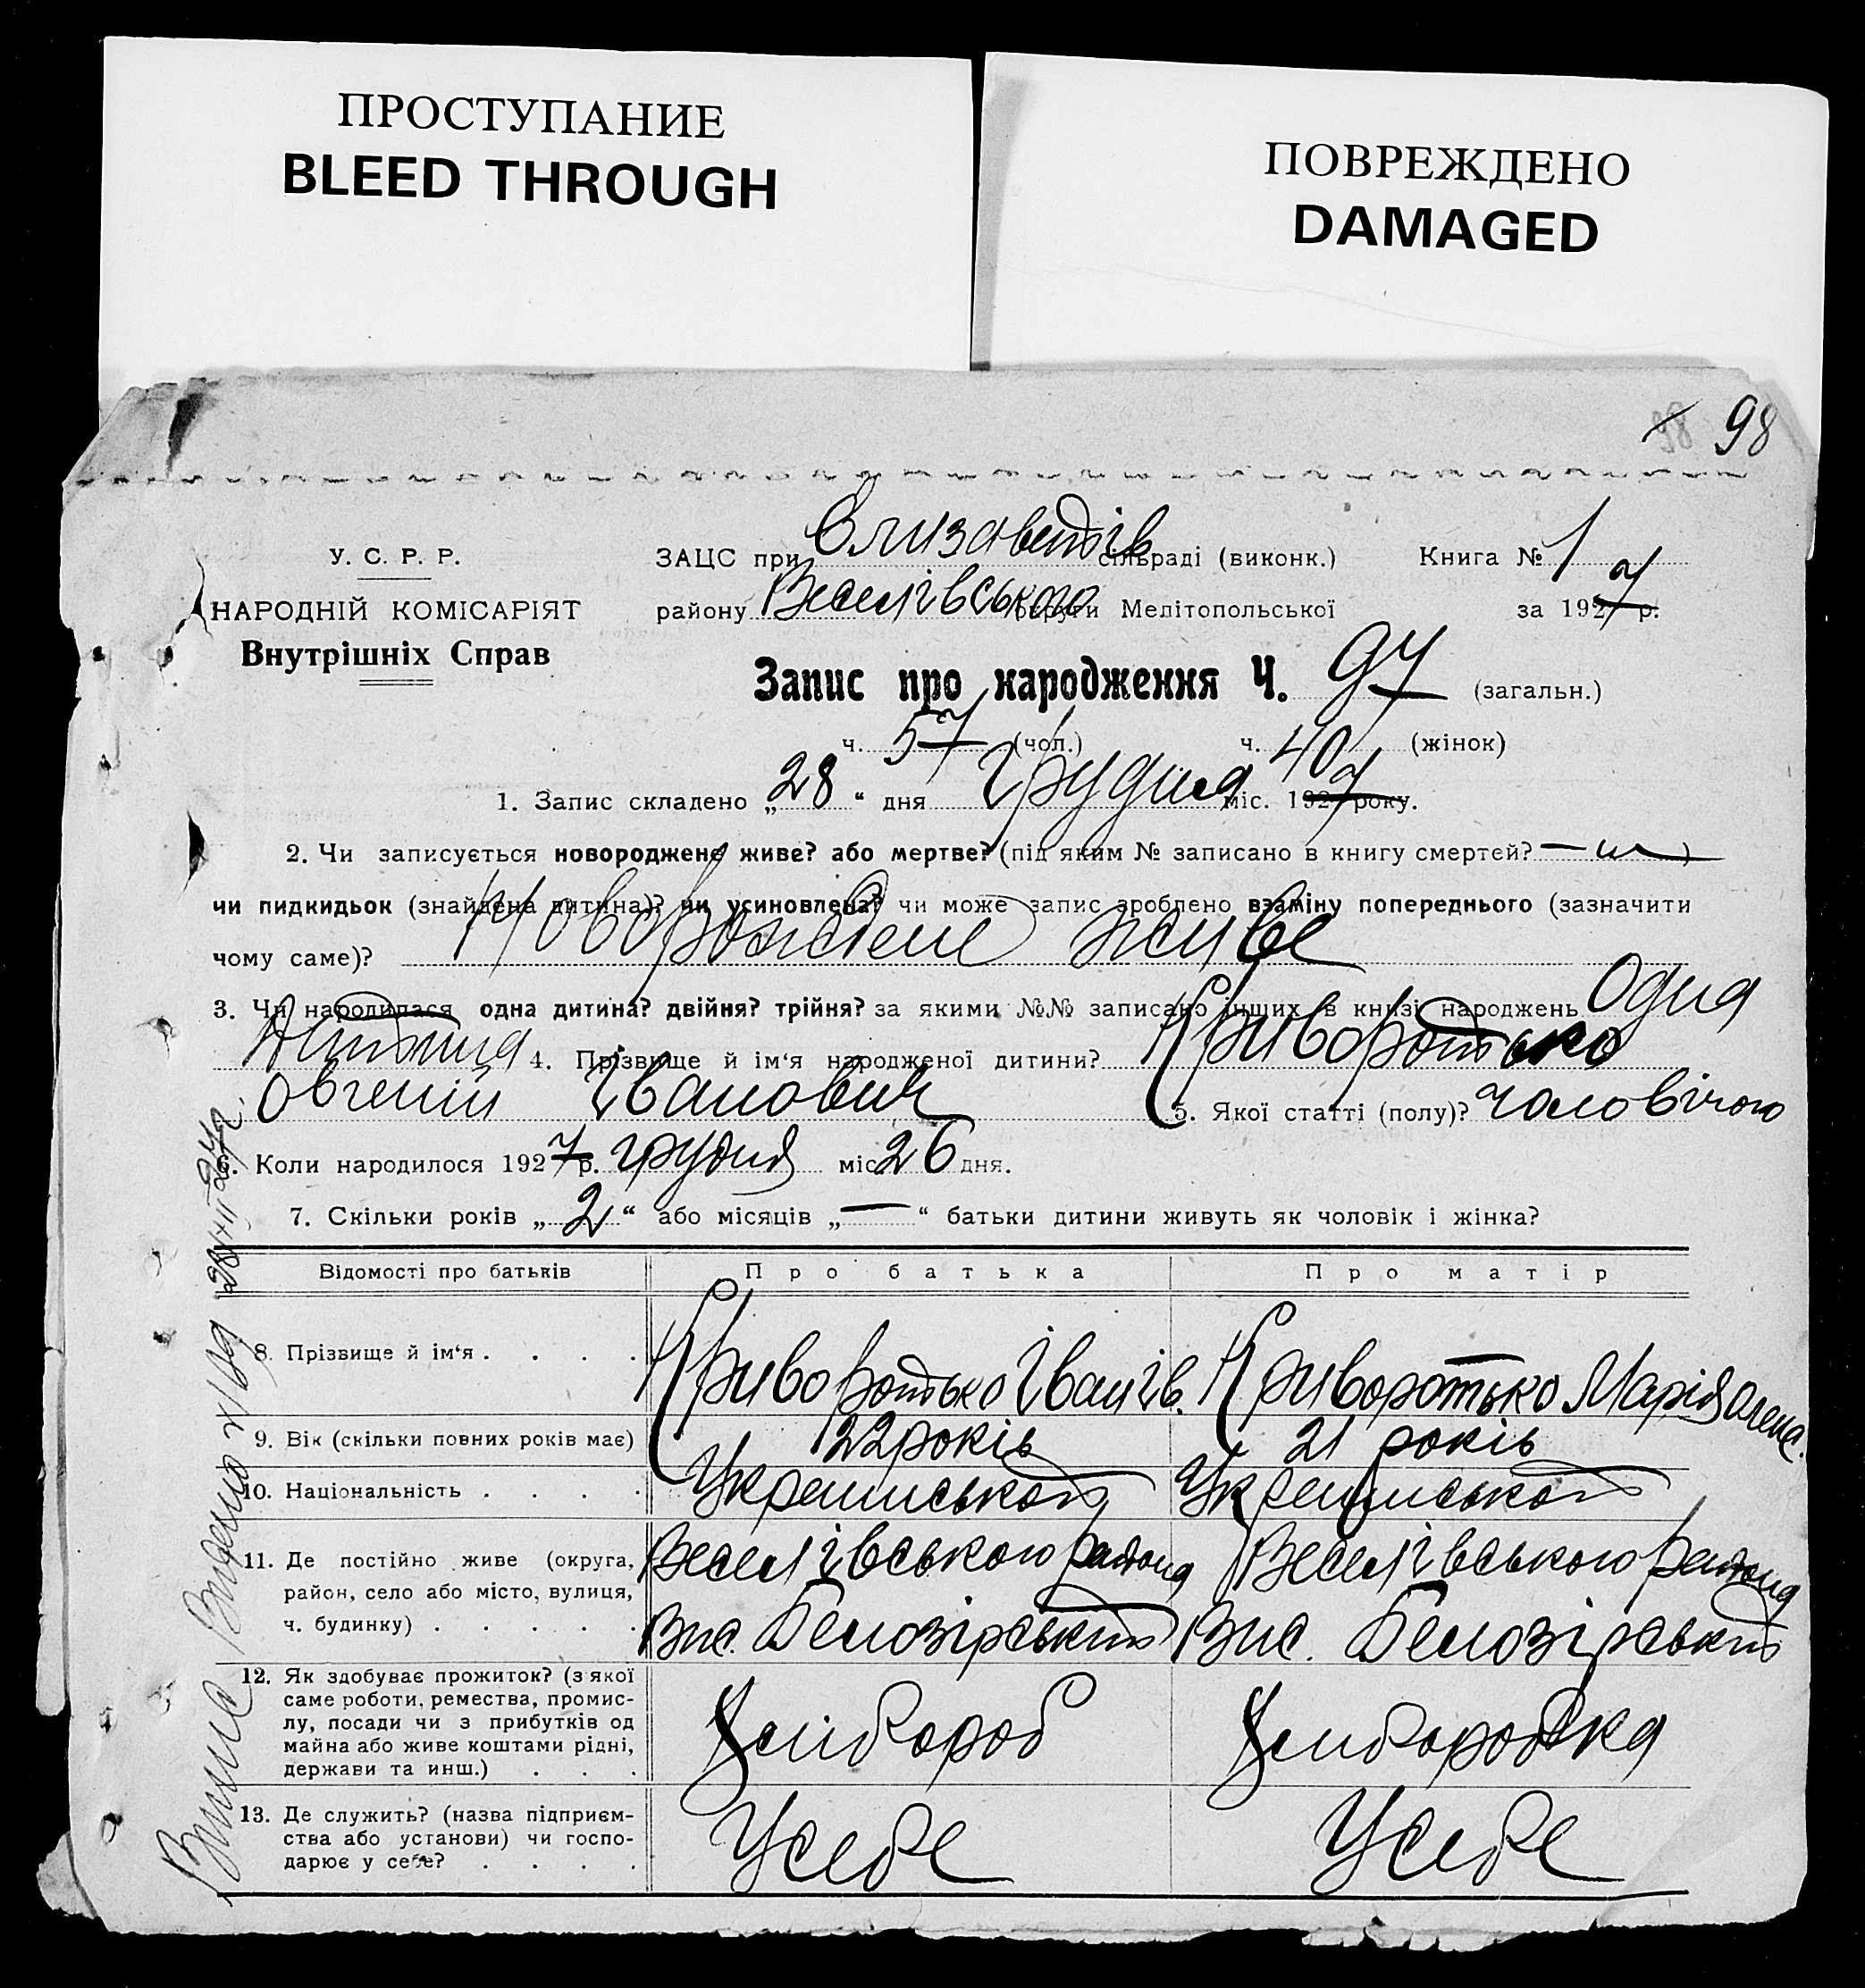 ПРОСТУПАНИЕ
BLEED THROUGH
ПОВРЕЖДЕНО
DAMAGED
98 98
У. С. Р. Р.
НАРОДНІЙ КОМІСАРІЯТ
Внутрішніх Справ
ЗАЦС при Єлизаветів сільраді (виконк.) Книга № 1
району Веселівського округи Мелітопольської за 1927 р.
Запис про народження Ч. 97 (загальн.)
ч. 57 (чол.) ч. 40 (жінок)
1. Запис складено „28“ дня грудня міс. 1927 року.
2. Чи записується новороджене живе? або мертве? (під яким № записано в книгу смертей? — )
чи пидкидьок (знайдена дитина)? чи усиновлена? чи може запис зроблено взаміну попереднього (зазначити
чому саме)? Новорожденє живе
3. Чи народилася одна дитина? двійня? трійня? за якими №№ записано інших в книзі народжень Одна
Дитина 4. Прізвище й ім‘я народженої дитини? Криворотько
Овгений Іванович 5. Якої статті (полу)? чоловічого
6. Коли народилося 1927 р. грудня міс. 26 дня.
7. Скільки років „2“ або місяців „—“ батьки дитини живуть як чоловік і жінка?
Відомості про батьків Про батька Про матір
8. Прізвище й ім‘я . . . . Криворотько Іван Ів. Криворотько Марія Олекс.
9. Вік (скільки повних років має) 22 років 21 років
10. Національність . . . . Украинськой Украинськой
11. Де постійно живе (округа, район, село або місто, вулиця, ч. будинку) . . . . .
Веселівського района Вис. Белозірський
Веселівського района Вис. Белозірський
12. Як здобуває прожиток? (з якої
саме роботи, ремества, промис-
лу, посади чи з прибутків од
майна або живе коштами рідні,
держави та инш.) . . .
Хлібороб Хліборобка
13. Де служить? (назва підприєм-
ства або установи) чи госпо-
дарює у себе? . . . .
У себе У себе